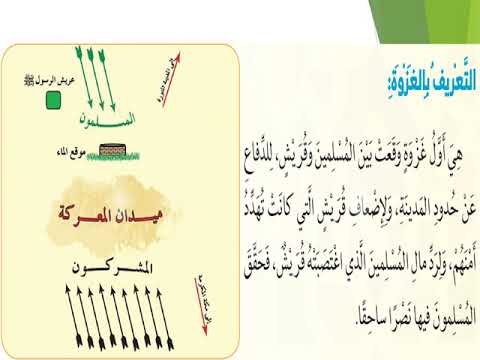 التَّعْرِيفُ بِالغَزْوَةِ:
هِيَ أَوَّلُ غَزْوَةٍ وَقَعَتْ بَيْنَ المُسْلِمينَ وَقُرَيْشٍ، لِلدِّفاعِ
عَنْ حُدودِ المَدينَةِ، وَلِإِضْعافِ قُرَيْشٍ الَّتي كانَتْ تُهَدِّدُ
أَمْنَهُمْ، وَلِرَدِّ مالِ المُسْلِمينَ الَّذي اغْتَصَبَتْهُ قُرَيْشٌ، فَحَقَّقَ
المُسْلِمونَ فيها نَصْرًا ساحِقًا.
عريش الرسول ﷺ
إلى المدينة المنورة
المسلمون
موقع الماء
ميدان المعركة
المشركون
إلى مكة المكرمة